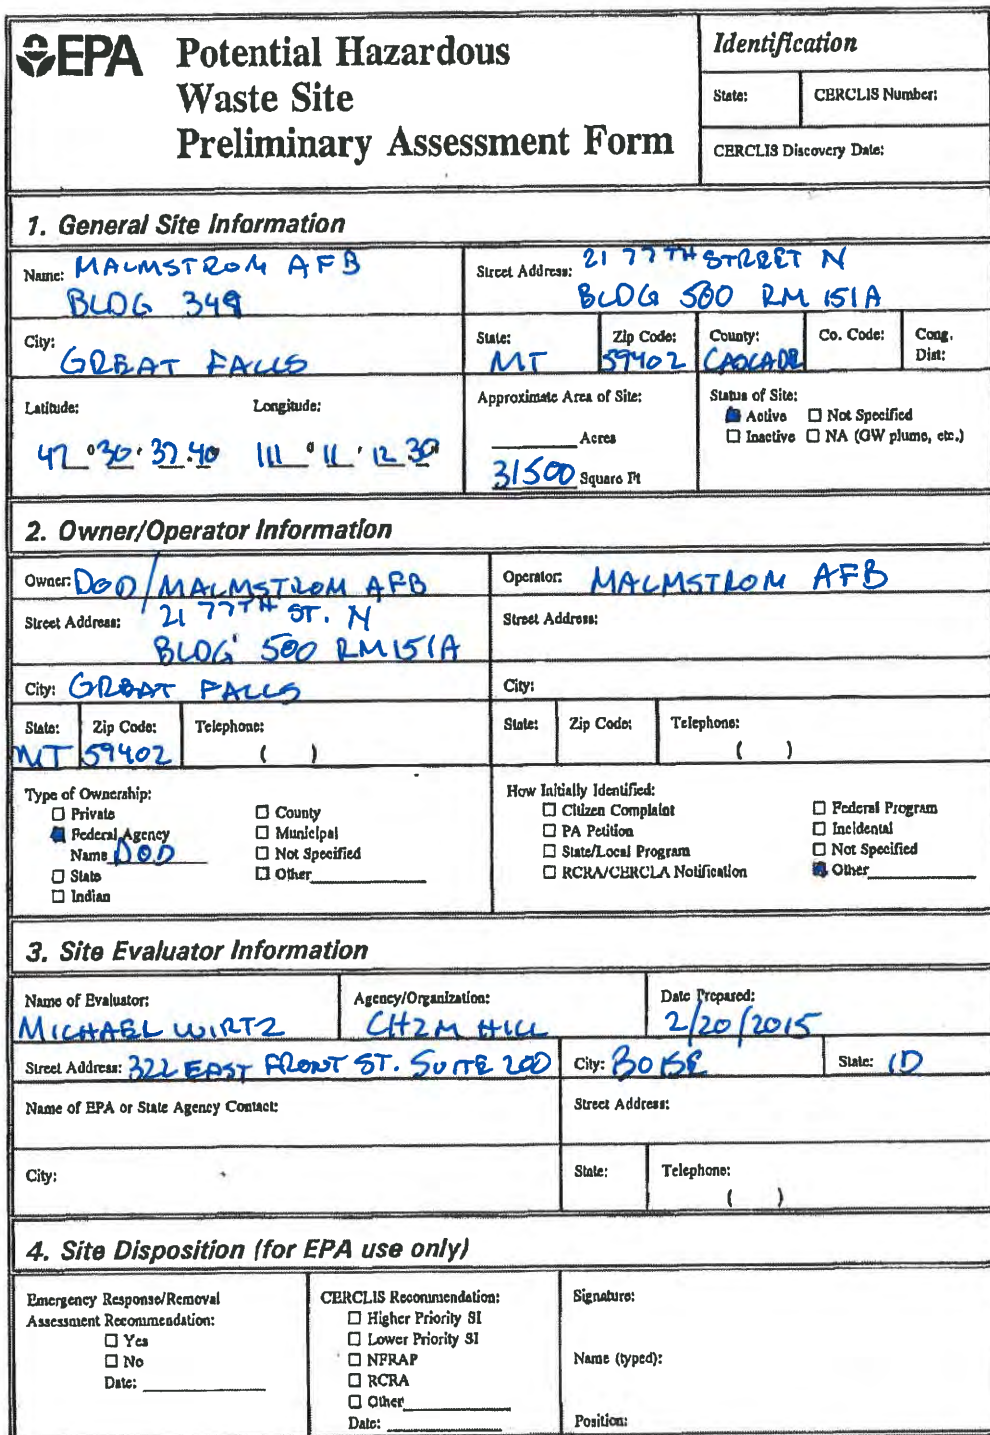 EPA Potential Hazardous
Waste Site
Preliminary Assessment Form
Identification
State: CERCLIS Number:
CERCLIS Discovery Date:
1. General Site Information
Name: MALMSTROM AFB
BLDG 349
Street Address: 21 77TH STREET N
BLDG 500 RM 151A
City: GREAT FALLS
State: MT
Zip Code: 59402
County: CASCADE
Co. Code:
Cong. Dist:
Latitude: Longitude:
47 ° 30 ' 37.40 111 ° 11 ' 12.30"
Approximate Area of Site:
Acres
31500 Square Ft
Status of Site:
Active ☐ Not Specified
☐ Inactive ☐ NA (GW plume, etc.)
2. Owner/Operator Information
Owner: DOD/MALMSTROM AFB
Operator: MALMSTROM AFB
Street Address: 21 77TH ST. N
BLDG 500 RM 151A
Street Address:
City: GREAT FALLS
City:
State: MT
Zip Code: 59402
Telephone: ( )
State: Zip Code: Telephone: ( )
Type of Ownership:
☐ Private ☐ County
Federal Agency ☐ Municipal
Name DOD ☐ Not Specified
☐ State ☐ Other
☐ Indian
How Initially Identified:
☐ Citizen Complaint ☐ Federal Program
☐ PA Petition ☐ Incidental
☐ State/Local Program ☐ Not Specified
☐ RCRA/CERCLA Notification Other
3. Site Evaluator Information
Name of Evaluator: MICHAEL WIRTZ
Agency/Organization: CH2M HILL
Date Prepared: 2/20/2015
Street Address: 322 EAST FRONT ST. SUITE 200
City: BOISE
State: ID
Name of EPA or State Agency Contact:
Street Address:
City:
State: Telephone: ( )
4. Site Disposition (for EPA use only)
Emergency Response/Removal
Assessment Recommendation:
☐ Yes
☐ No
Date:
CERCLIS Recommendation:
☐ Higher Priority SI
☐ Lower Priority SI
☐ NFRAP
☐ RCRA
☐ Other
Date:
Signature:
Name (typed):
Position: